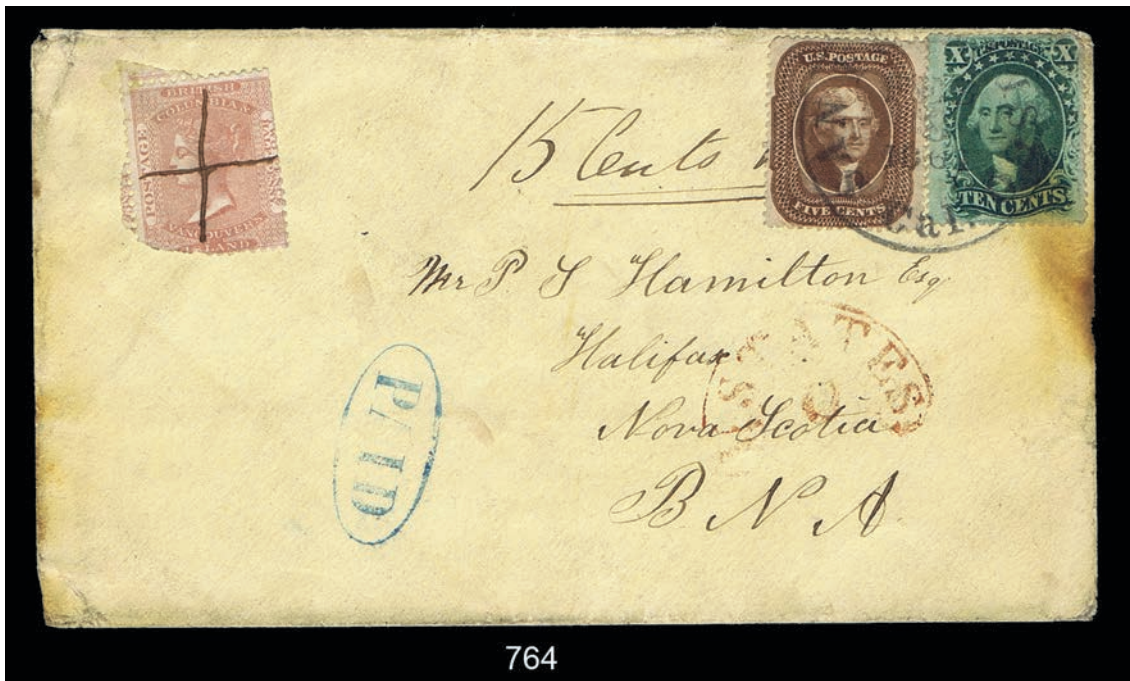 BRITISH
COLUMBIA &
POSTAGE
VANCOUVERS
ISLAND
U.S. POSTAGE
FIVE CENTS
X U.S. POSTAGE X
TEN CENTS
Cal.
15 Cents
Mr P. S Hamilton Esq
Halifax
Nova Scotia
B. N. A.
STATES
PAID
764